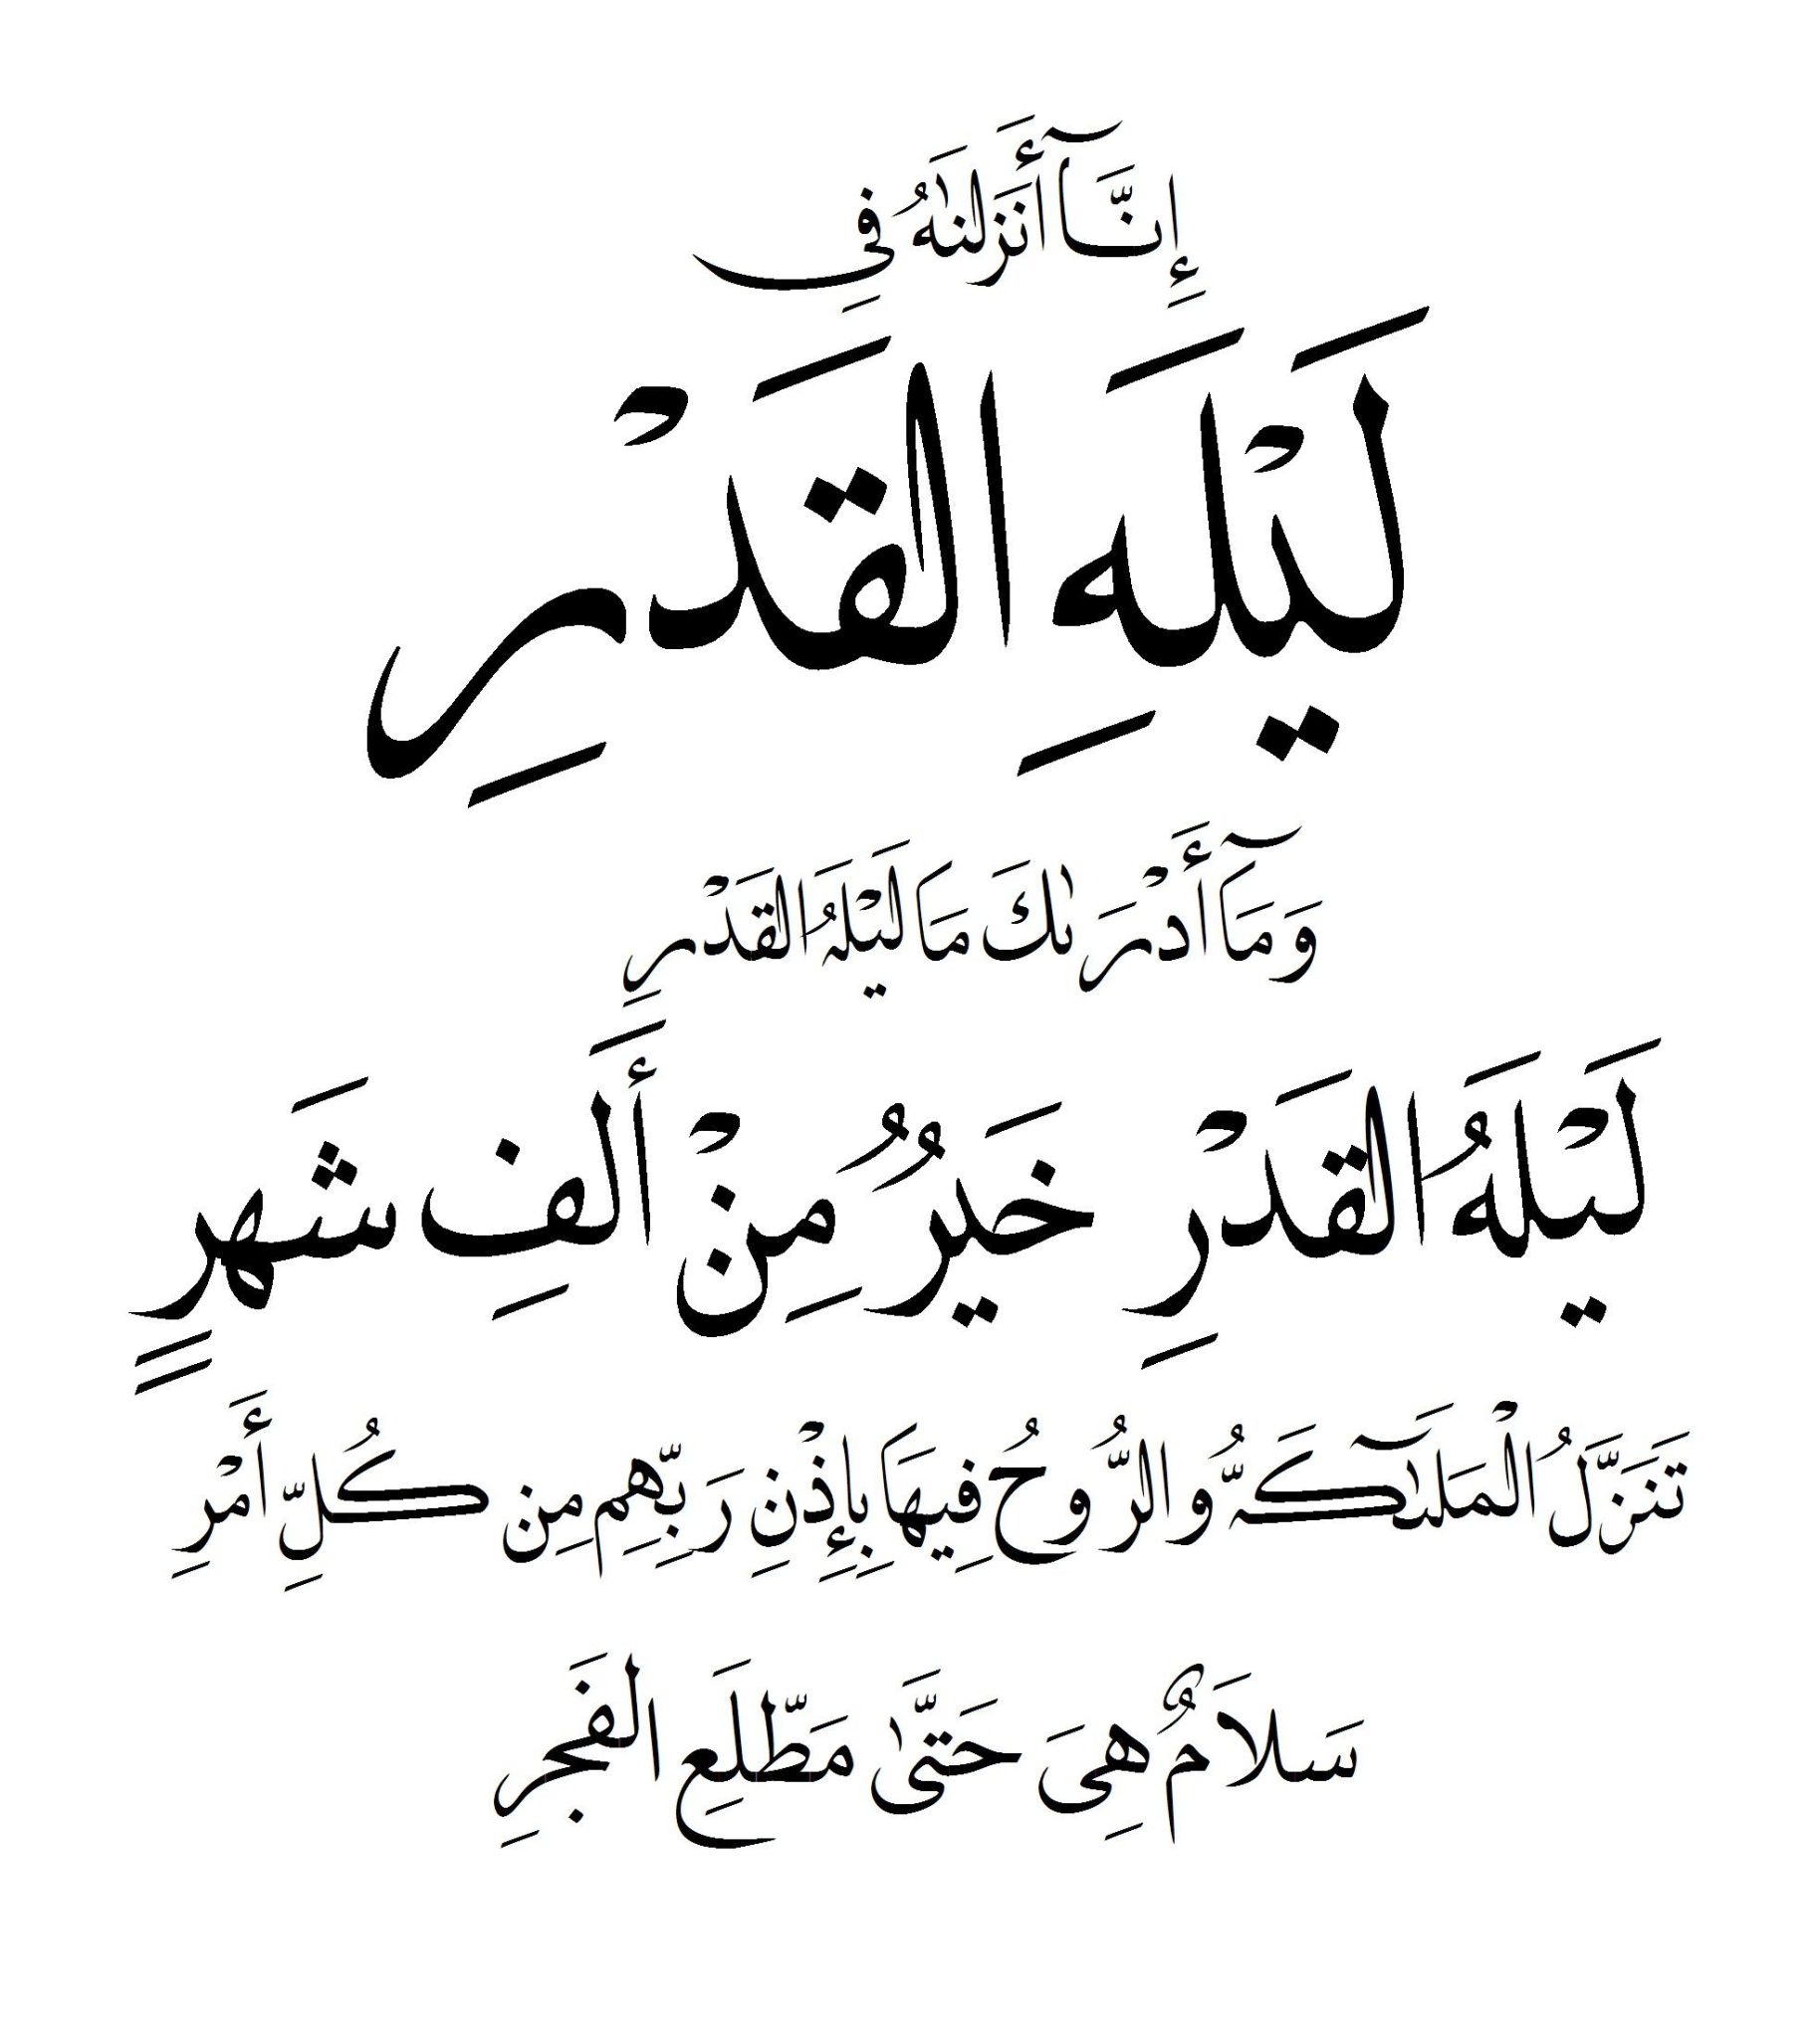 إِنَّآ أَنَزَلنَٰهُ فِي
لَيْلَهِ القَدْرِ
وَمَآ أَدْرَىٰكَ مَا لَيْلَهُ القَدْرِ
لَيْلَهُ القَدْرِ خَيرُُ مِنْ أَلفِ شَهرٍ
تَنَزَّلُ الْمَلَٰٓكَهُّ والرُّوحُ فِيهَا بِإِذْنِ رَبِّهِم مِن كُلِّ أَمْرِ
سَلاَمٌ هِيَ حَتَّىٰ مَطّلَعِ الفَجرِ